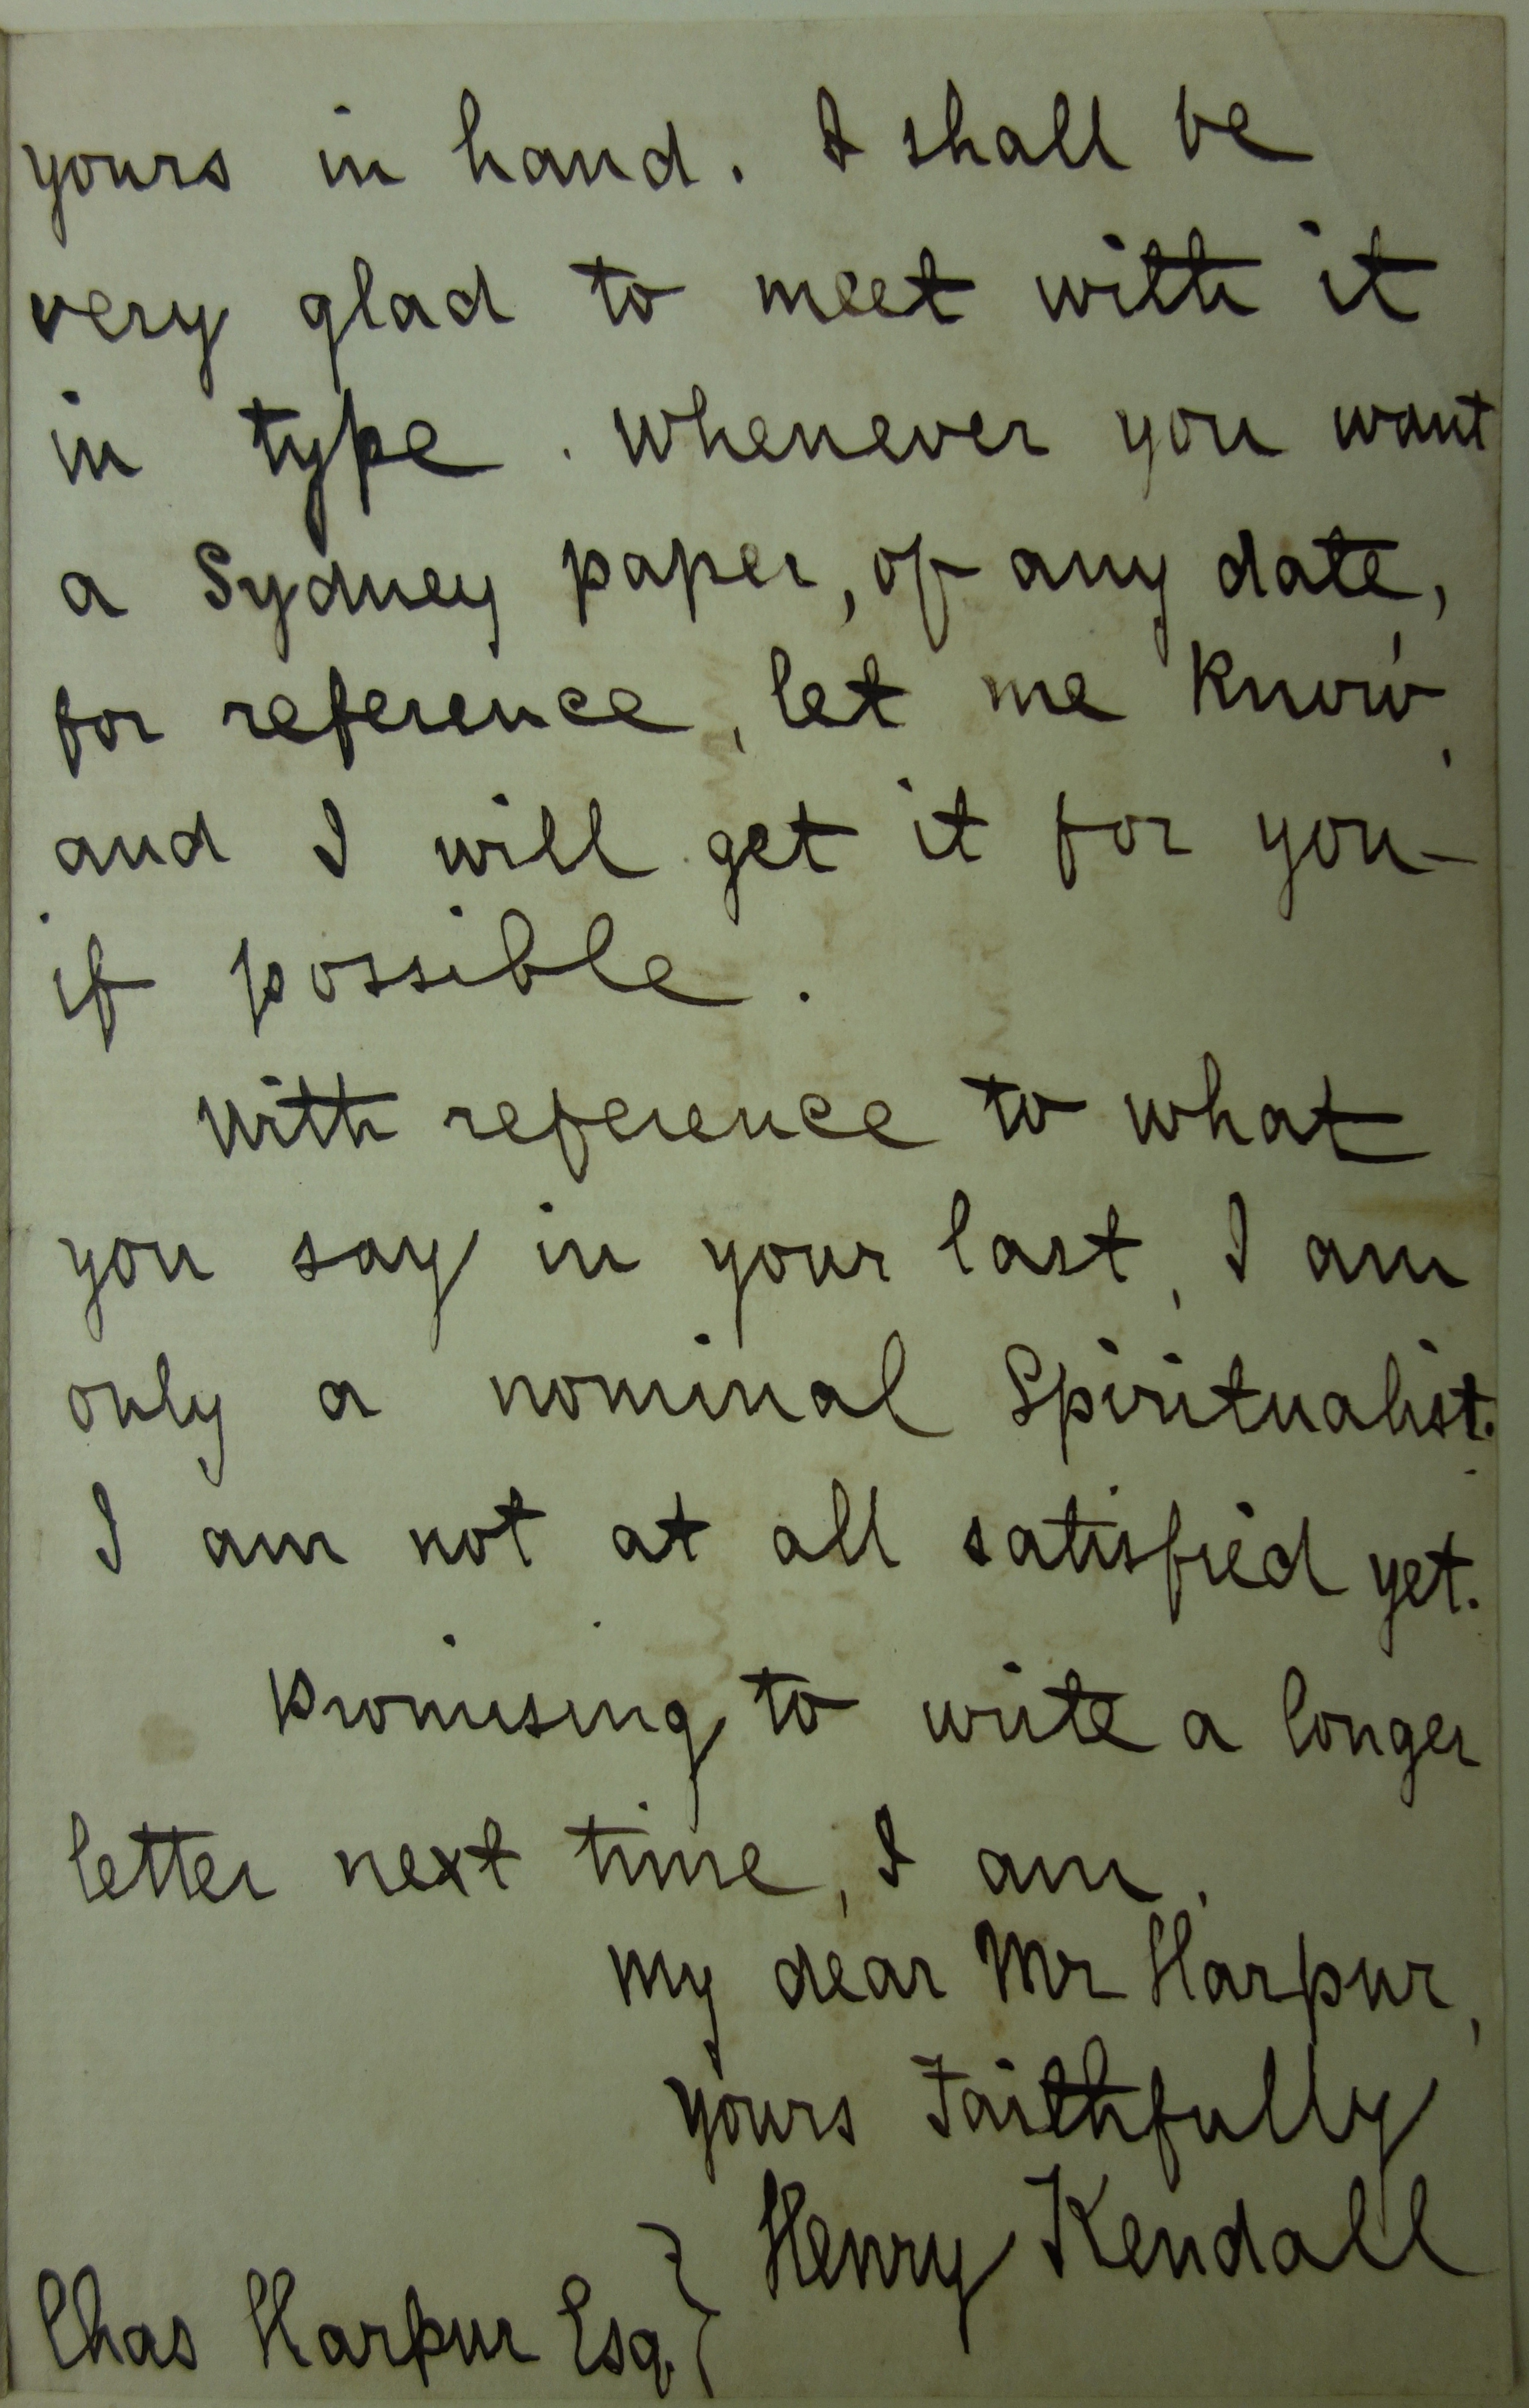 yours in hand. I shall be
very glad to meet with it
in type. Whenever you want
a Sydney paper, of any date,
for reference, let me know,
and I will get it for you
if possible.
With reference to what
you say in your last, I am
only a nominal Spiritualist.
I am not at all satisfied yet.
Promising to write a longer
letter next time, I am,
my dear Mr Harpur,
yours Faithfully
Henry Kendall
Chas Harpur Esq. }